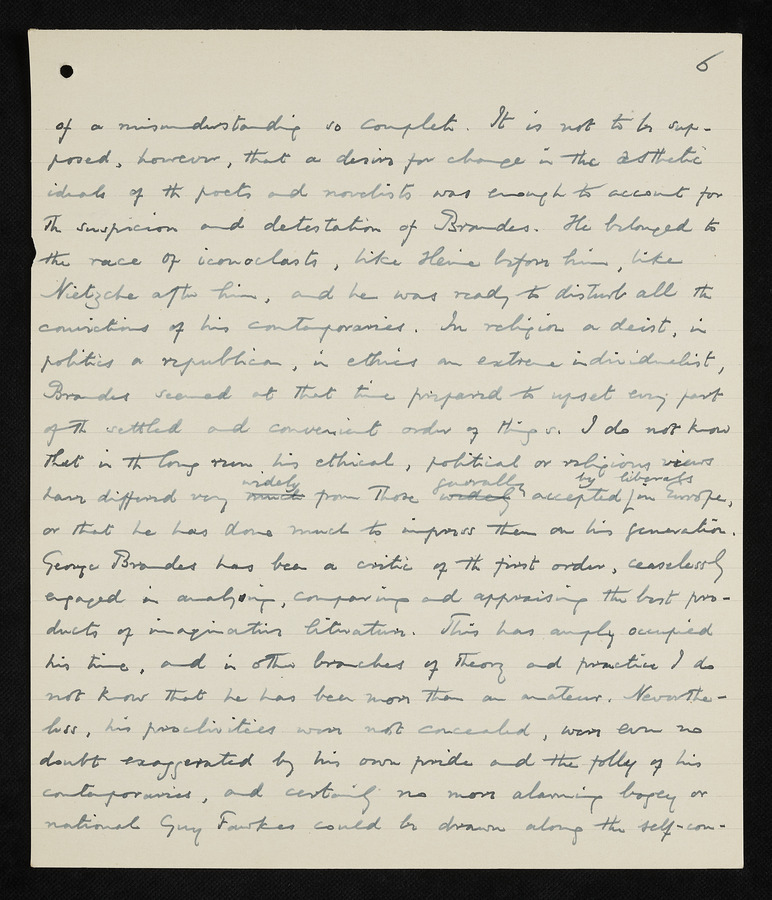 6
of a misunderstanding so complete. It is not to be sup-
posed, however, that a desire for change in the æsthetic
ideals of the poets and novelists was enough to account for
the suspicion and detestation of Brandes. He belonged to
the race of iconoclasts, like Heine before him, like
Nietzche after him, and he was ready to disturb all the
convictions of his contemporaries. In religion a deist, in
politics a republican, in ethics an extreme individualist,
Brandes seemed at that time prepared to upset every part
of the settled and convenient order of things. I do not know
that in the long run his ethical, political or religious views
widely generally by liberals
have differed very much from those widely accepted in Europe,
or that he has done much to impress them on his generation.
George Brandes has been a critic of the first order, ceaselessly
engaged in analysing, comparing and appraising the best pro-
ducts of imaginative literature. This has amply occupied
his time, and in other branches of theory and practice I do
not know that he has been more than an amateur. Neverthe-
less, his proclivities were not concealed, were even no
doubt exaggerated by his own pride and the folly of his
contemporaries, and certainly no more alarming bogey or
national Guy Fawkes could be drawn along the self-con-